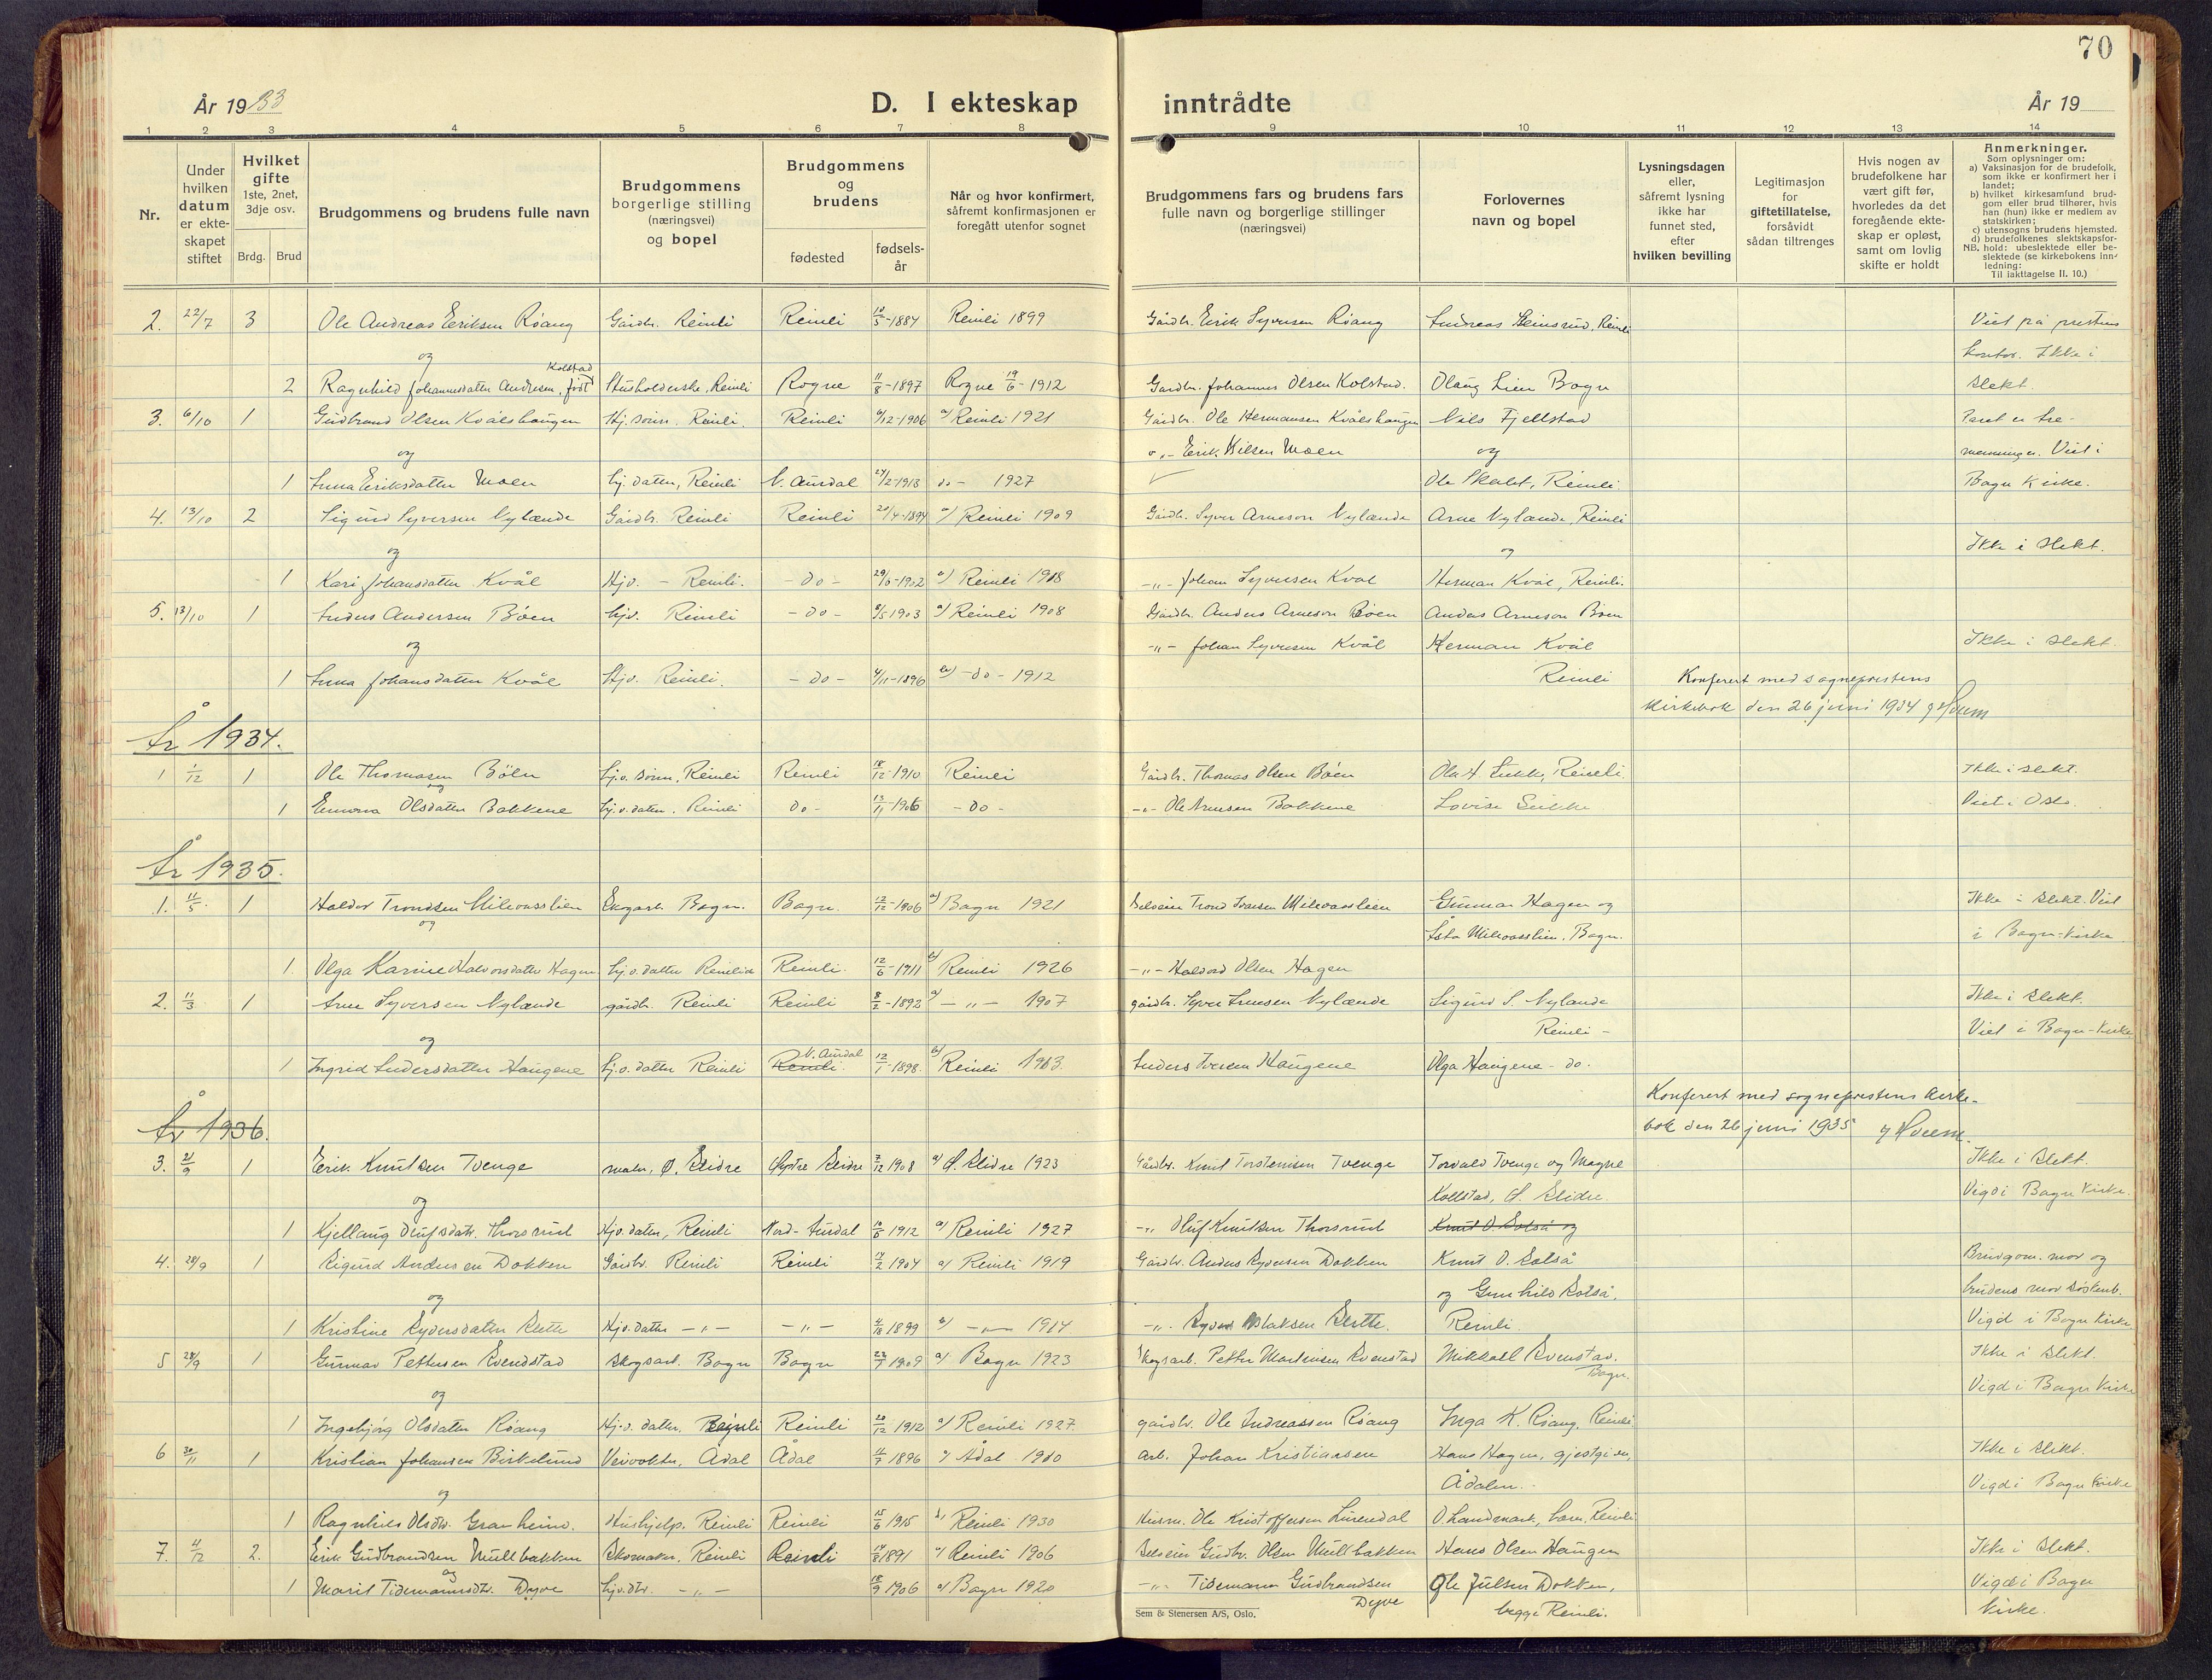 70
År 1933
D. I ekteskap inntrådte
År 19
1 2 3 4 5 6 7 8 9 10 11 12 13 14
Nr.
Under hvilken datum er ekteskapet stiftet
Hvilket gifte 1ste, 2net, 3dje osv.
Brdg. Brud
Brudgommens og brudens fulle navn
Brudgommens borgerlige stilling (næringsvei) og bopel
Brudgommens og brudens
fødested
fødselsår
Når og hvor konfirmert, såfremt konfirmasjonen er foregått utenfor sognet
Brudgommens fars og brudens fars fulle navn og borgerlige stillinger (næringsvei)
Forlovernes navn og bopel
Lysningsdagen eller, såfremt lysning ikke har funnet sted, efter hvilken bevilling
Legitimasjon for giftetillatelse, forsåvidt sådan tiltrenges
Hvis nogen av brudefolkene har vært gift før, hvorledes da det foregående ekteskap er opløst, samt om lovlig skifte er holdt
Anmerkninger.
Som oplysninger om:
a) Vaksinasjon for de brudefolk, som ikke er konfirmert her i landet;
b) hvilket kirkesamfund brudgom eller brud tilhører, hvis han (hun) ikke er medlem av statskirken;
c) utensogns brudens hjemsted.
d) brudefolkenes slektskapsforhold: ubeslektede eller beslektede (se kirkebokens innledning:
NB.
Til iakttagelse II. 10.)
2. 22/7 3 Ole Andreas Eriksen Röang Gårdbr. Reinli Reinli 10/5-1884 Reinli 1899 Gårdbr. Erik Syversen Röang Andreas Leinsrud, Reinli Viet på prestens
og kontor. Ikke i
Kolstad
2 Ragnhild Johannesdatter Andresen, født Husholderske, Reinli Rogne 11/8-1897 Rogne 19/6-1912 Gardbr. Johannes Olsen Kolstad. Olaug Lien Bagn slekt.
3. 6/10 1 Gudbrand Olsen Kválshaugen Hj. sönn. Reinli. Reinli 6/12-1906 a/ Reinli 1921 Gårdbr. Ole Hermansen Kválshaugen Nils Fjellstad Paret er tre-
og -"- Erik Nilsen Moen og menninger. Viet i
1 Anna Eriksdatter Moen hj. datter, Reinli N. Aurdal 27/2-1913 do- 1927 Ole Skalet, Reinli Bagn Kirke.
4. 13/10 2 Sigurd Syversen Nylænde Gårdbr. Reinli Reinli 20/4-1894 a/ Reinli 1909 Gårdbr. Syver Arneson Nylænde Arne Nylænde, Reinli
og og Ikke i slekt.
1 Kari Johansdatter Kvål Hjv. - Reinli. - do - 29/6-1902 a/ Reinli 1918 -"- Johan Syversen Kvål Herman Kvål, Reinli.
5. 13/10 1 Anders Andersen Böen hjv. Reinli - do - 8/5 1903 a/ Reinli 1908 Gårdbr. Anders Arneson Böen Anders Arneson Böen
og -"- Johan Syversen Kvål Herman Kvål Ikke i slekt.
1 Anna Johansdatter Kvål Hjv. Reinli. - do - 4/11-1896 b/ - do - 1912 Reinli Konferert med sogneprestens
kirkebok den 26 juni 1934
År 1934.
1 1/12 1 Ole Thomasen Böen hj.v. sönn, Reinli Reinli 18/12-1910 Reinli Gårdbr. Thomas Olsen Böen Ola A Sukke, Reinli Ikke i slekt.
og
1 Emma Olsdatter Bakkene hj.v. datter. Reinli do- 13/11-1906 - do - -"- Ole Arnesen Bakkene Lovise Sukke Viet i Oslo.
År 1935.
1. 11/5 1 Haldor Trondsen Milevasslien Skogarb. Bagn. Bagn. 12/12-1906 a/ Bagn 1921 Selveier Trond Ivarsen Milevasslien Gunnar Hagen og Ikke i slekt. Viet
og Asta Milevasslien. Bagn. i Bagn-Kirke
1. Olga Karine Halvorsdatter Hagen hj.v. datter Reinli Reinli. 12/6-1911 b/ Reinli 1926 -"- Halvord Olsen Hagen
2. 11/3 1 Arne Syversen Nylænde gårdbr. Reinli Reinli 8/2-1892 a/ -"- 1907 gårdbr. Syver Arnesen Nylænde Sigurd S. Nylænde Ikke i slekt.
Reinli - Viet i Bagn-Kirke
og N. Aurdal
1 Ingrid Andersdatter Haugene hj.v. datter Reinli Reinli 12/1-1898. b/ Reinli 1913. Anders Iversen Haugene Olga Haugene - do.
Konferert med sogneprestens kirke-
År 1936. bok den 26 juni 1935
3. 21/9 1 Erik Knutsen Tvenge maler, Ø. Slidre Østre Slidre 7/12 1908 a/ Ø. Slidre 1923 Gårdbr. Knut Torsteinsen Tvenge Torvald Tvenge og Magne Ikke i slekt.
og Kollstad, Ø. Slidre. Vigd i Bagn Kirke.
1 Kjellaug Olufsdatr. Thorsrud Hjv. datter, Reinli Nord-Aurdal 10/5 1912 a/ Reinli 1927 -"- Oluf Knutsen Thorsrud Knut O. Solså og
4. 28/9 1 Sigurd Andersen Dokken Gårdbr. Reinli Reinli 17/2 1904 a/ Reinli 1919 Gårdbr. Anders Syversen Dokken Knut O. Solså Brudgom. mor og
og og Gunhild Solså. brudens mor söskenb.
1 Kristine Syversdatter Slette Hjv. datter -"- -"- 4/10 1899 b/ -"- 1914 -"- Syver Aslaksen Slette. Reinli. Vigd i Bagn Kirke
5 28/9 1 Gunnar Pettersen Svendstad Skogsarb. Bagn Bagn 22/7 1909 a/ Bagn 1923 Skogsarb. Petter Martinsen Svenstad Mikkell Svenstad. Ikke i slekt.
og Bagn. Vigd i Bagn Kirke
1 Ingebjörg Olsdatter Röang Hj.v. datter. Reinli Reinli 20/12 1912 a/ Reinli 1927. gårdbr. Ole Andreassen Röang Inga K. Röang. Reinli
6 30/11 1 Kristian Johansen Birkelund Veivokter. Ådal Ådal 11/7 1896 a/ Ådal 1910 Arb. Johan Kristiansen Hans Hagen, gjestgiver, Ikke i slekt.
og Ådalen.. Vigd i Bagn Kirke
1 Ragnhild Olsdtr. Granheim. Hushjelp. Reinli Reinli 15/6 1915 b, Reinli 1930 Husm. Ole Kristoffersen Linendal O. Landmark, barn. Reinli
7. 4/12 2. Erik Gudbrandsen Mullbakken Skomaker. Reinli Reinli 14/8 1891 a/ Reinli 1906 Selveier Gudbr. Olsen Mullbakken Hans Olsen Haugen Ikke i slekt.
og
1 Marit Tidemannsdtr. Dyve hj.v.dtr. -"- 18/9 1906 a/ Bagn 1920 -"- Tidemann Gudbrandsen Ole Julsen Dokken, Vigd i Bagn
Dyve begge Reinli. Kirke.
Sem & Stenersen A/S, Oslo.